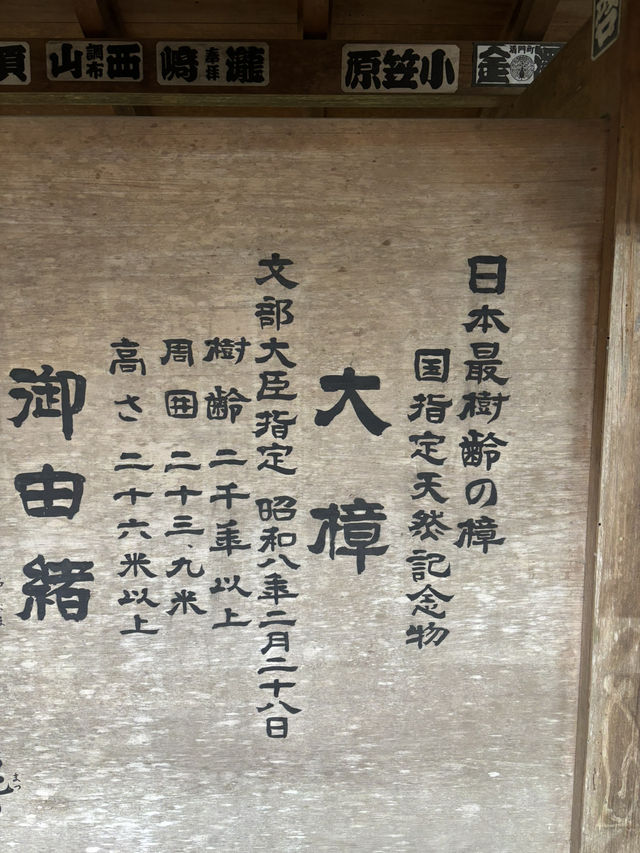 小笠原
瀧崎
奉拝
西山
調布
日本最樹齢の樟
国指定天然記念物
大樟
文部大臣指定 昭和八年二月二十八日
樹齢 二千年以上
周囲 二十三、九米
高さ 二十六米以上
御由緒
まつ